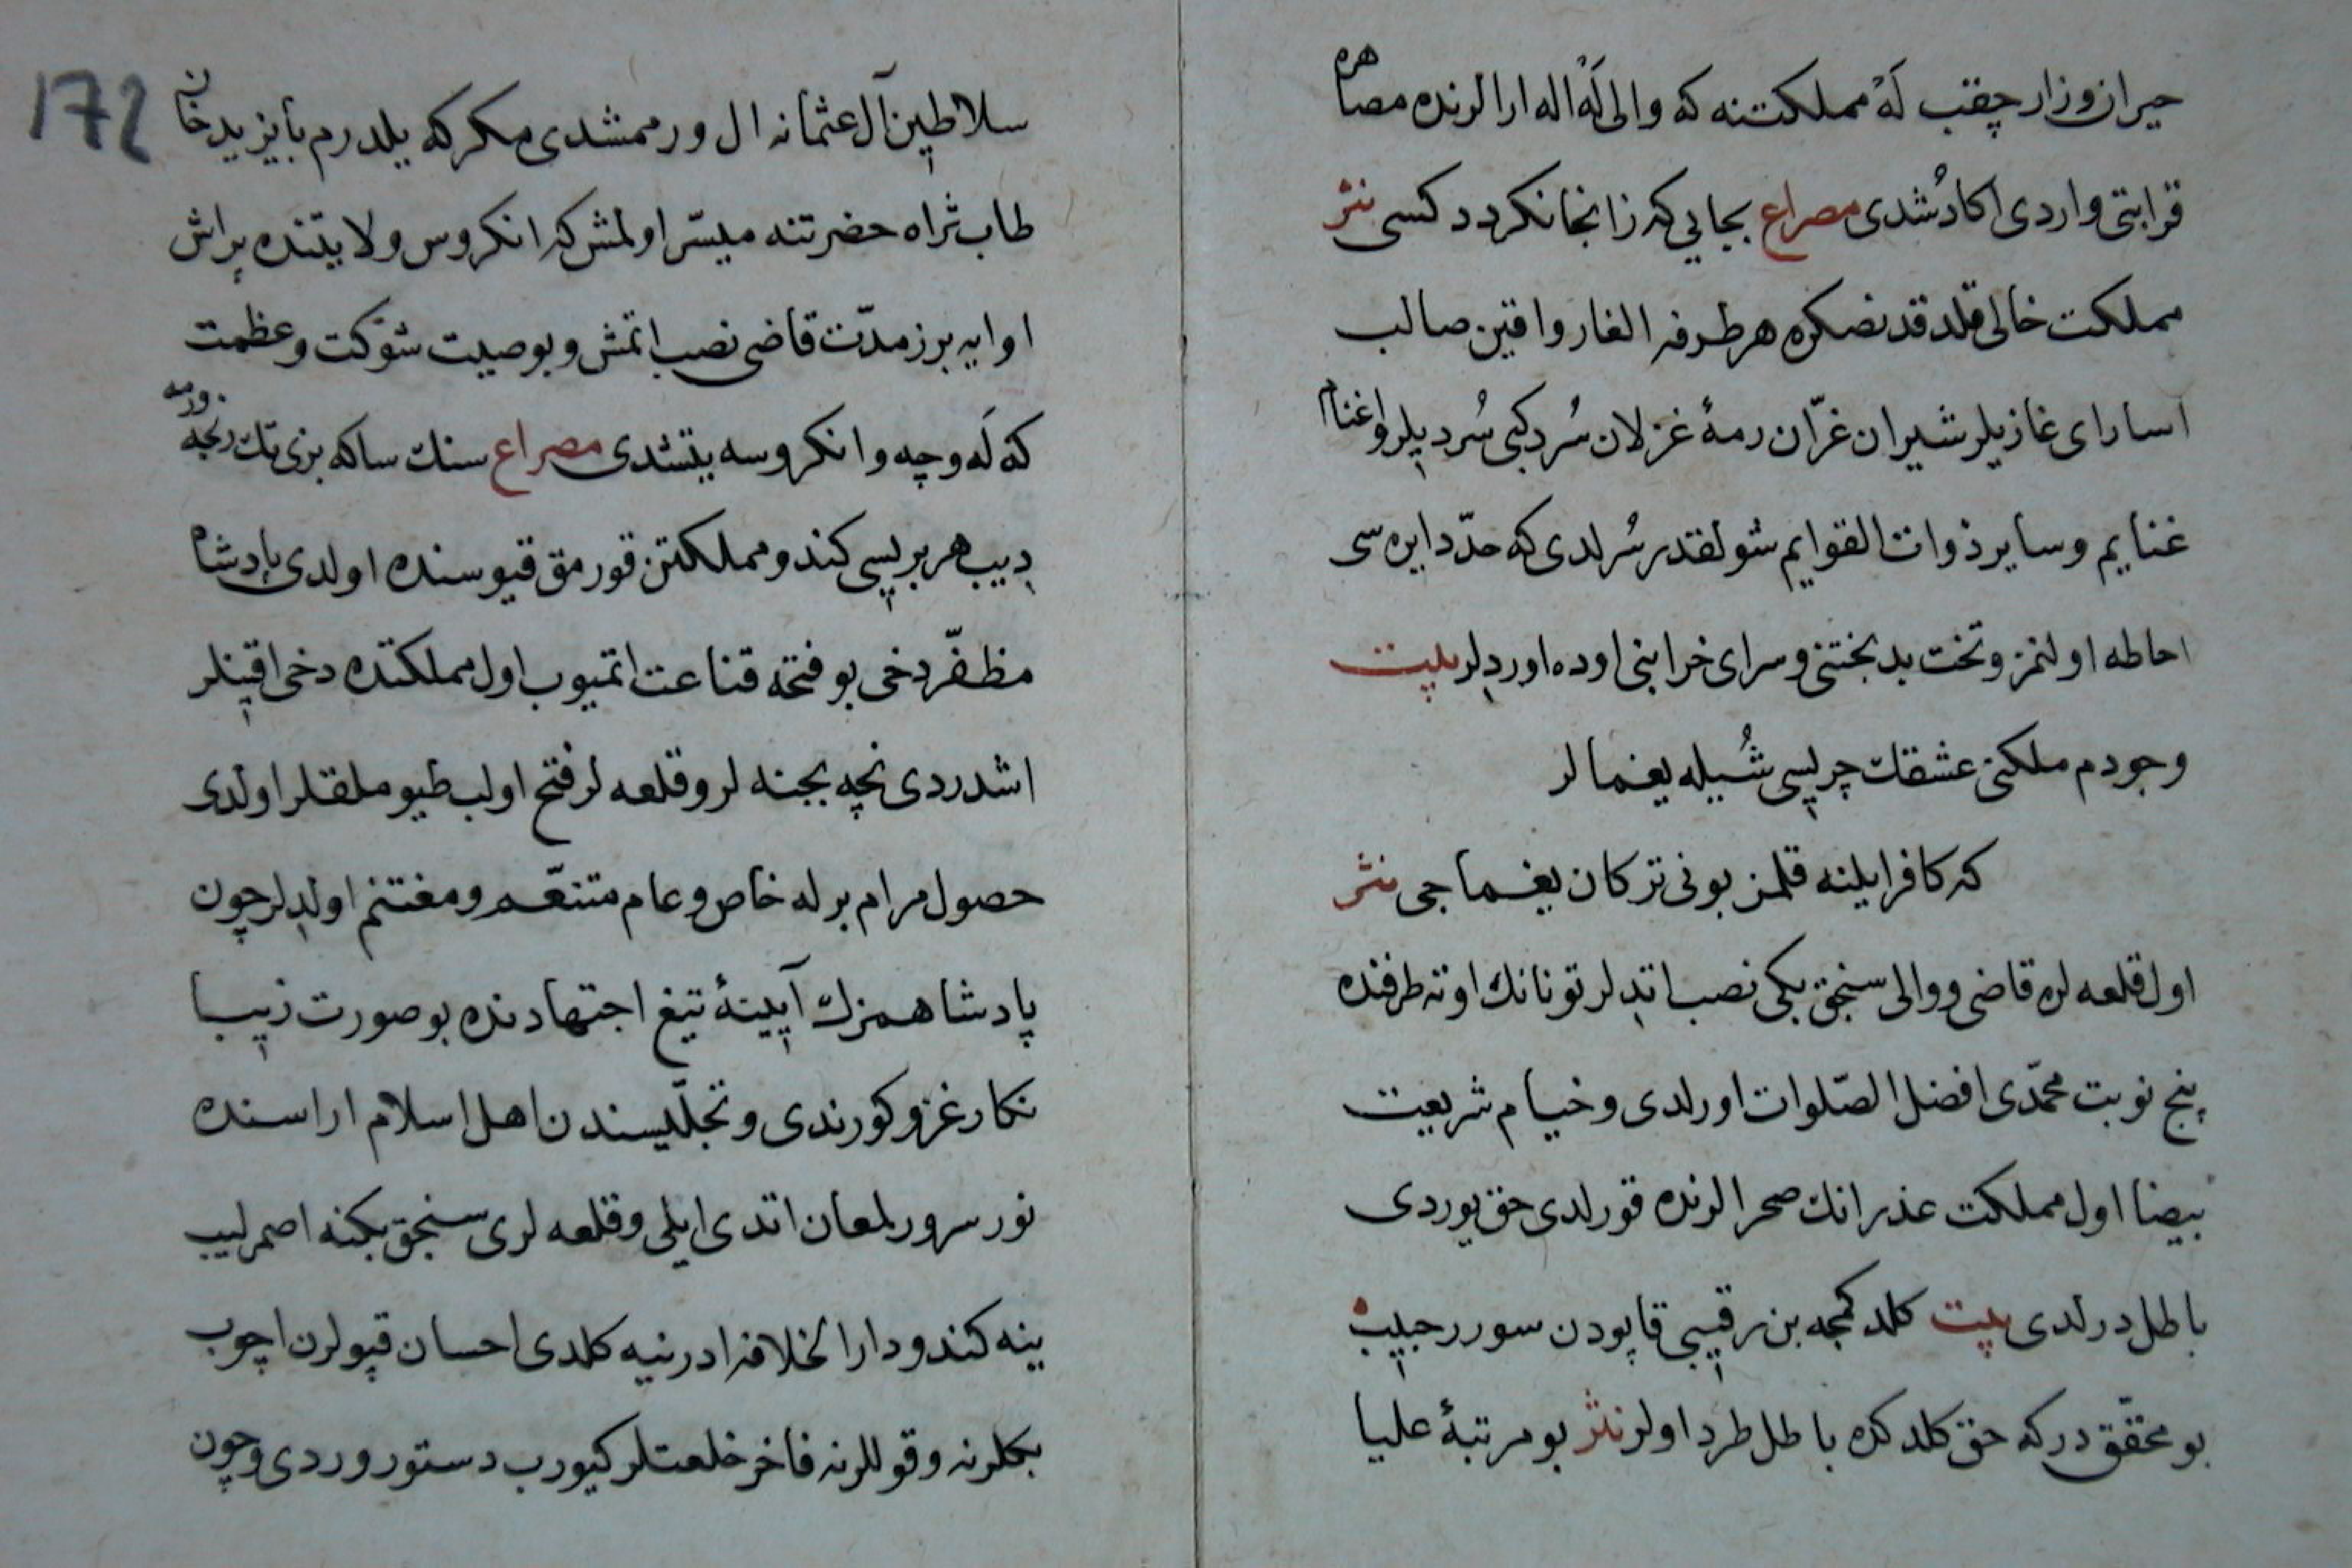 حيران و زار چقب لَهْ مملكتنه كه والى لَهْ اله ارالرنده مصاهره
قرابتى واردى اكا دُشدى مصراع بجايي كه زانجا نكردد كسى نثر
مملكت خالى قلدقدنصكره هر طرفه الغار و اقين صالب
اسارای غازيلر شيران غرّان رمۀ غزلان سُرد كبى سُرديلر و اغنام
غنايم و ساير ذوات القوايم شولقدر سُرلدى كه حدّ دايره سى
احاطه اولنمز و تخت بدبختنى و سراى خرابنى اوده اورديلر بيت
وجودم ملكنى عشقك چريسى شُيله يغمالر
كه كافر ايلنه قلمز بونى تركان يغماجى نثر
اول قلعه لره قاضى و والى سنجق بكى نصب اتديلر تونانك اوته طرفنده
پنج نوبت محمّدى افضل الصّلوات اورلدى و خيام شريعت
بيضا اول مملكت عذرانك صحرالرنده قورلدى حق يوردى
باطل درلدى بيت كلدكمجه بن رقيبى قاپودن سورر حبيب
بو محقّق در كه حق كلدكده باطل طرد اولر نثر بو مرتبۀ عليا
172
سلاطين آل عثمانه ال ورممشدى مكر كه يلدرم بايزيد خان
طاب ثراه حضرتنه ميسّر اولمش كه انكروس ولايتنده براش
اوايه برز مدّت قاضى نصب اتمش و بو صيت شوكت و عظمت
كه لَه و چه و انكروسه يتشدى مصراع سنك ساكه بزى تك رنجه ورمه
ديب هر بريسى كندو مملكتن قورمق قيوسنده اولدى پادشاه
مظفّر دخى بو فتحه قناعت اتميوب اول مملكتده دخى اقينلر
اشدردى نچه بجنه لر و قلعه لر فتح اولب طيوملقلر اولدى
حصول مرام برله خاص و عام متنعّم و مغتنم اولديلر چون
پادشاهمزك آيينۀ تيغ اجتهادنده بو صورت زيبا
نكار غزو كورندى و تجلّيسندن اهل اسلام اراسنده
نور سرور لمعان اتدى ايلى و قلعه لرى سنجق بكنه اصمرليب
ينه كندو دار الخلافه ادرنيه كلدى احسان قپولرن اچوب
بكلرنه و قوللرنه فاخر خلعتلر كيورب دستور وردى و چون